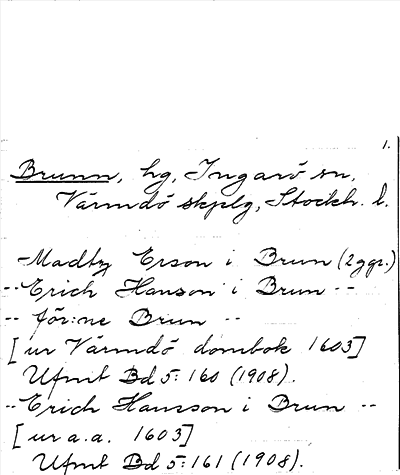 1.
Brunn, hg, Ingarö sn,
Värmdö skplg, Stockh. l.
-Madtz Erson i Brun (2 ggr.)
-- Erich Hanson i Brun --
-- för:ne Brun --
[ur Värmdö dombok 1603]
Ufmt Bd 5:160 (1908).
-- Erich Hansson i Brun --
[ur a.a. 1603]
Ufmt Bd 5:161 (1908).